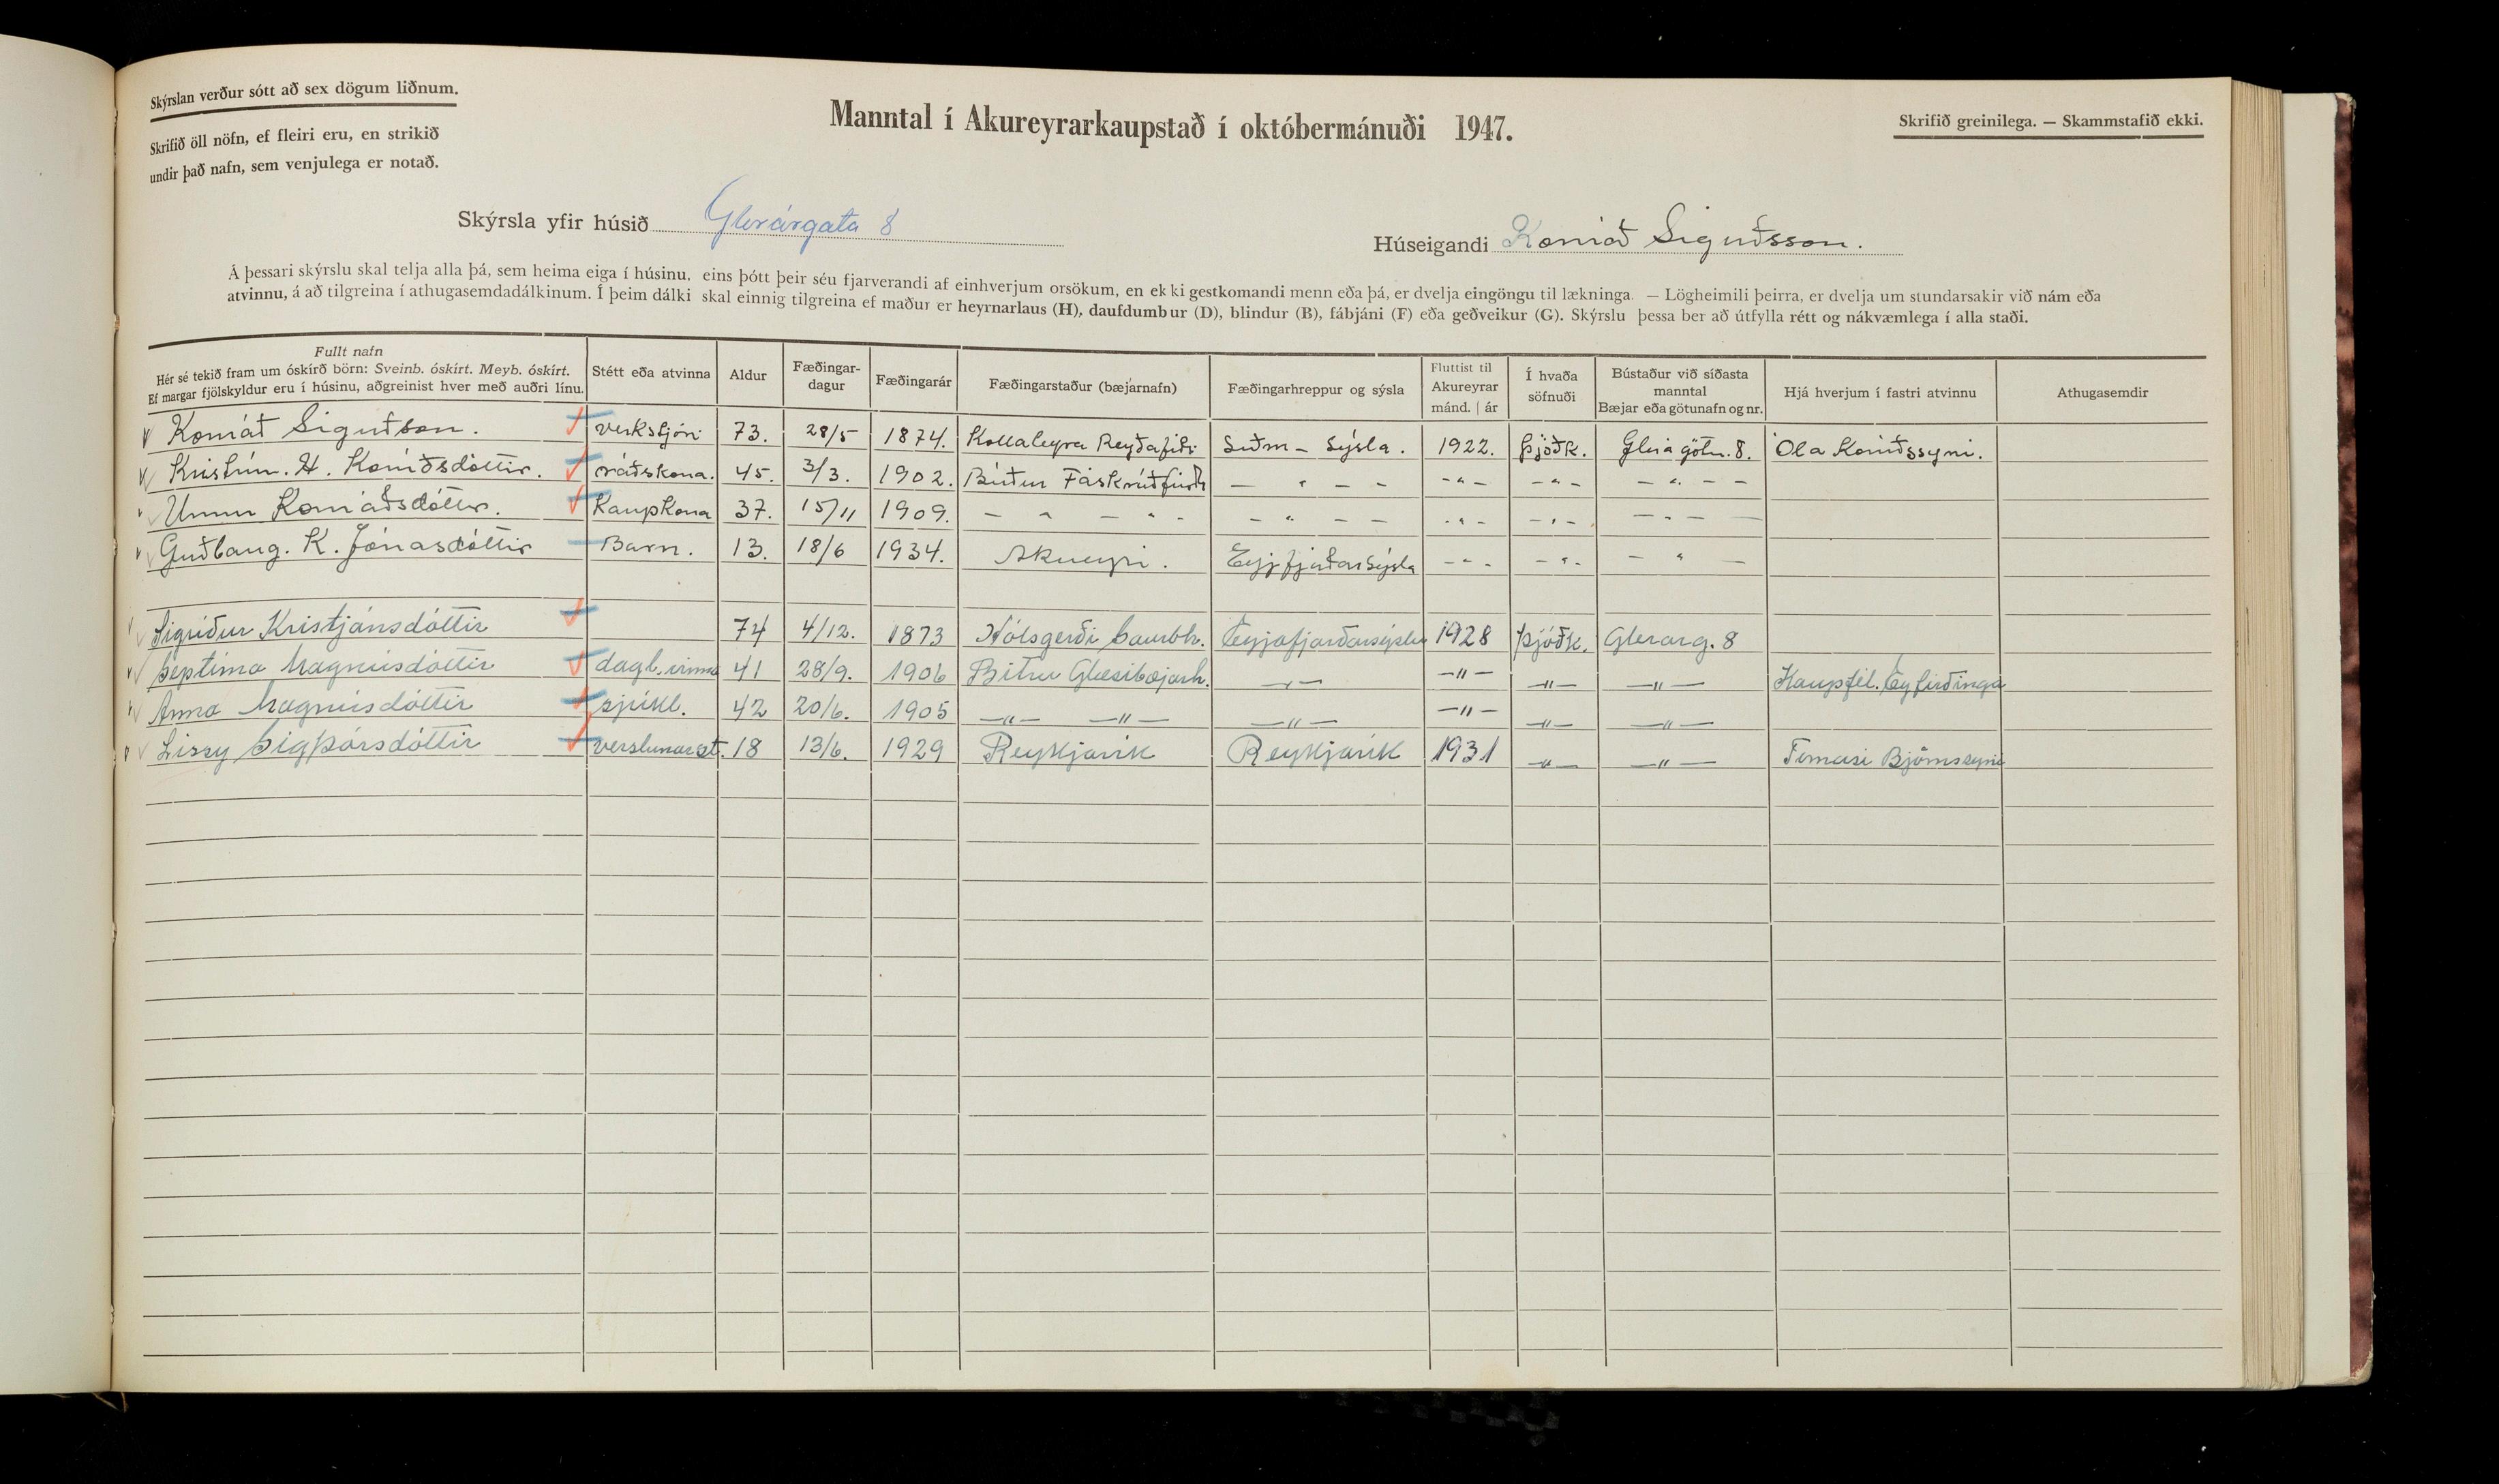 Skýrslan verður sótt að sex dögum liðnum.
Skrifið öll nöfn, ef fleiri eru, en strikið
undir það nafn, sem venjulega er notað.
Manntal í Akureyrarkaupstað í októbermánuði 1947.
Skrifið greinilega. — Skammstafið ekki.
Skýrsla yfir húsið Glerárgata 8
Húseigandi Konráð Sigurðsson.
Á þessari skýrslu skal telja alla þá, sem heima eiga í húsinu, eins þótt þeir séu fjarverandi af einhverjum orsökum, en ekki gestkomandi menn eða þá, er dvelja eingöngu til lækninga. — Lögheimili þeirra, er dvelja um stundarsakir við nám eða
atvinnu, á að tilgreina í athugasemdadálkinum. Í þeim dálki skal einnig tilgreina ef maður er heyrnarlaus (H), daufdumbur (D), blindur (B), fábjáni (F) eða geðveikur (G). Skýrslu þessa ber að útfylla rétt og nákvæmlega í alla staði.
Fullt nafn
Hér sé tekið fram um óskírð börn: Sveinb. óskírt. Meyb. óskírt.
Ef margar fjölskyldur eru í húsinu, aðgreinist hver með auðri línu.
Stétt eða atvinna
Aldur
Fæðingar-
dagur
Fæðingarár
Fæðingarstaður (bæjarnafn)
Fæðingarhreppur og sýsla
Fluttist til
Akureyrar
mánd. | ár
Í hvaða
söfnuði
Bústaður við síðasta
manntal
Bæjar eða götunafn og nr.
Hjá hverjum í fastri atvinnu
Athugasemdir
Konráð Sigurðsson. verkstjóri 73. 28/5 1874. Kollaleyra Reyðafirði Suðm - Sýsla. 1922. Þjóðk. Glerágötu. 8. Óla Konráðssyni.
Kristrún. H. Konráðsdóttir. ráðskona. 45. 3/3. 1902. Búðum Fáskrúðfirði — " - - - " - - " - — ". - -
Unnur Konráðsdóttir. Kaupkona 37. 15/11 1909. - " - " - - " - - - " - - " - - " -
Guðlaug. K. Jónasdóttir Barn. 13. 18/6 1934. Akureyri. Eyjfjarðarsýsla - " - - " - - " -
Sigríður Kristjánsdóttir 74 4/12. 1873 Hólsgerði Saurbh. Eyjafjarðarsýslu 1928 Þjóðk. Glerarg. 8
Septíma Magnúsdóttir dagl. vinna 41 28/9. 1906 Bitru Glæsibæjarh. -"- -"- -"- -"- Kaupfél. Eyfirðinga
Anna Magnúsdóttir sjúkl. 42 20/6. 1905 -"- -"- -"- -"- -"- -"-
Lissy Sigþórsdóttir verslunarst. 18 13/6. 1929 Reykjavík Reykjavík 1931 -"- -"- Tómasi Björnssyni